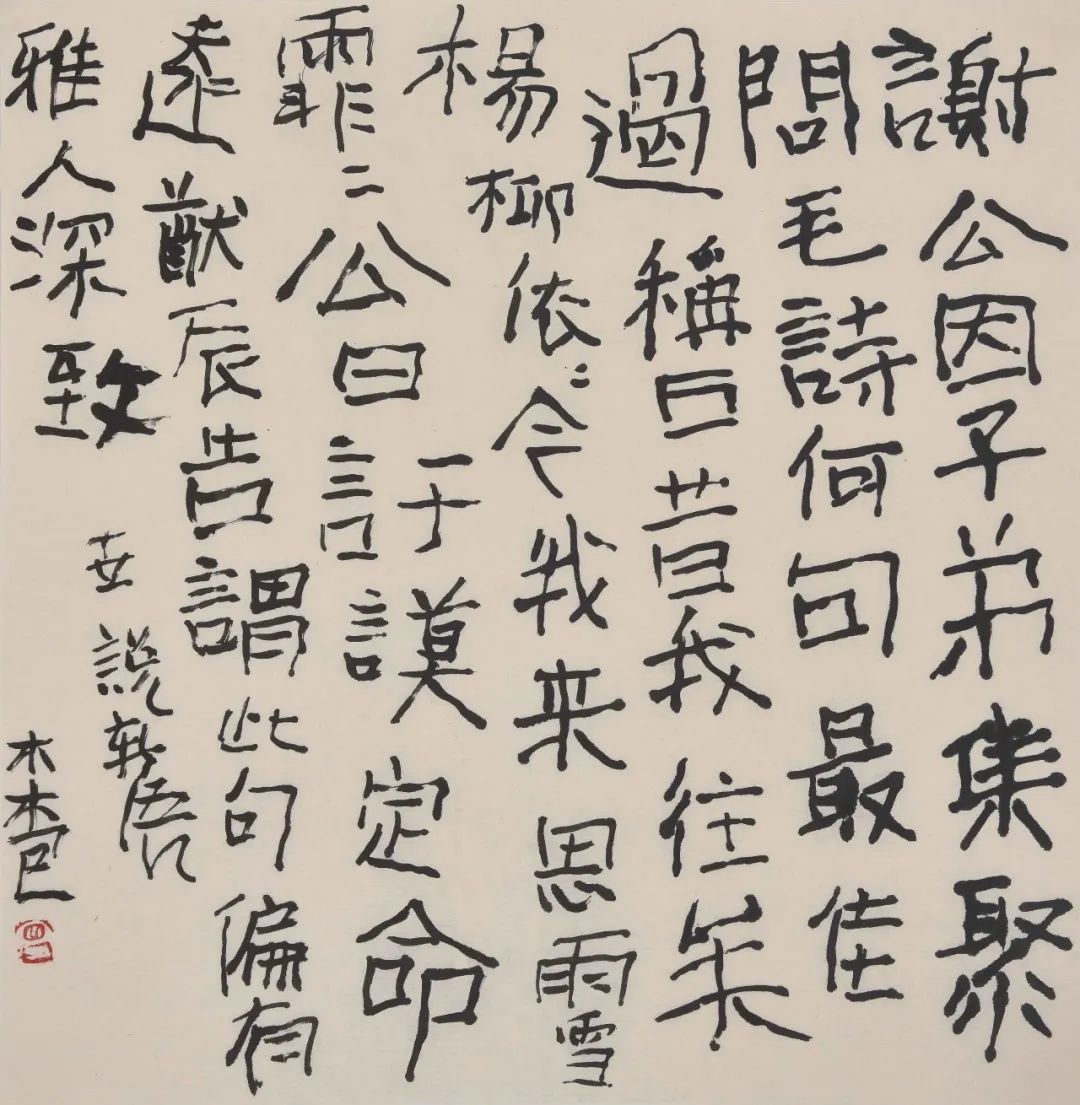 謝公因子弟集聚
問毛詩何句最佳
遏稱曰昔我往矣
楊柳依〻今我来思雨雪
霏〻公曰訏謨定命
遠猷辰告謂此句偏有
雅人深致
世說新語